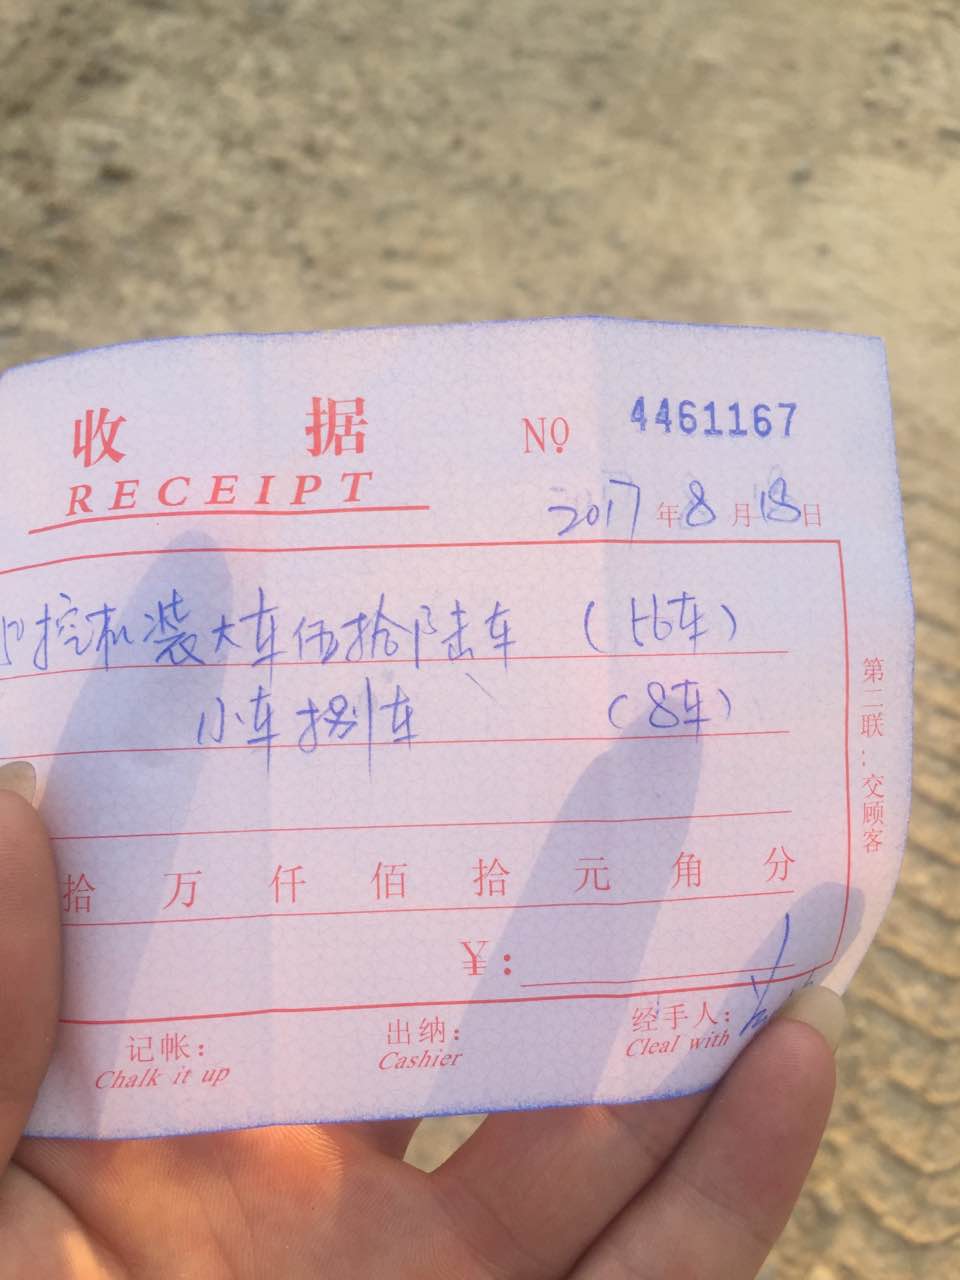 收 据
RECEIPT
No 4461167
2017年8月18日
挖机装大车伍拾陆车 (56车)
小车捌车 (8车)
拾 万 仟 佰 拾 元 角 分
¥:
记帐: 出纳: 经手人:
Chalk it up Cashier Cleal with
第二联:交顾客